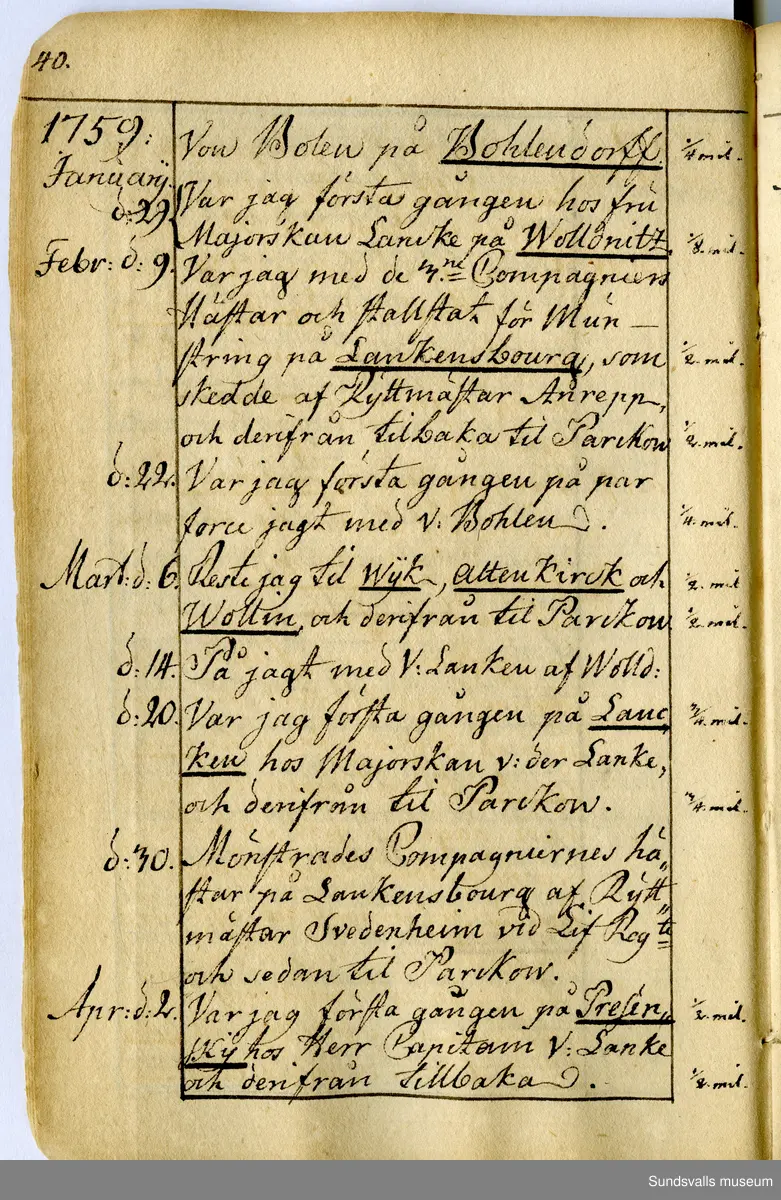 40.
1759: Von Bolen på Bohlendorff. 1/4 mil.
Januarij.
d: 29. Var jag första gången hos fru
Majorskan Lancke på Wolldnitz. 1/8. mil.
Febr: d: 9. Var jag med de 3.ne Compagniers
Hästar och stallstat för Mün-
string på Lankensbourg, som 1/2. mil.
skedde af Ryttmästar Anrepp,
och derifrån tilbaka til Parckow 1/2. mil.
d: 22. Var jag första gången på par
force jagt med v: Bohlen. 1/4. mil.
Mart: d: 6. Reste jag til Wijk, Altenkirck och 1/2. mil
Wollin, och derifrån til Parckow 1/2. mil.
d: 14. På jagt med V: Lanken af Wolld:
d: 20. Var jag första gången på Lanc, 3/4. mil.
ken hos Majorskan v: der Lanke,
och derifrån til Parckow. 3/4. mil.
d: 30. Mönstrades Compagniernes hä„
star på Lankensbourg af Rytt„
mästar Svedenheim vid Lif Regte
och sedan til Parckow.
Apr: d: 2. Var jag första gången på Presen, 1/2. mil.
skij hos Herr Capitain V: Lanke
och derifrån tillbaka. 1/2. mil.
Sundsvalls museum